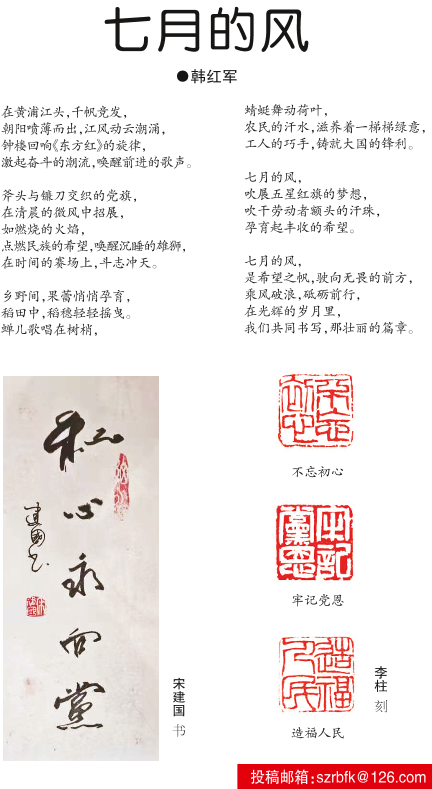 七月的风
●韩红军
在黄浦江头,千帆竞发,
朝阳喷薄而出,江风动云潮涌,
钟楼回响《东方红》的旋律,
激起奋斗的潮流,唤醒前进的歌声。
斧头与镰刀交织的党旗,
在清晨的微风中招展,
如燃烧的火焰,
点燃民族的希望,唤醒沉睡的雄狮,
在时间的赛场上,斗志冲天。
乡野间,果蕾悄悄孕育,
稻田中,稻穗轻轻摇曳。
蝉儿歌唱在树梢,
蜻蜓舞动荷叶,
农民的汗水,滋养着一梯梯绿意,
工人的巧手,铸就大国的锋利。
七月的风,
吹展五星红旗的梦想,
吹干劳动者额头的汗珠,
孕育起丰收的希望。
七月的风,
是希望之帆,驶向无畏的前方,
乘风破浪,砥砺前行,
在光辉的岁月里,
我们共同书写,那壮丽的篇章。
心永向黨
建國书
宋建国 书
不忘初心
不忘初心
牢记黨恩
牢记党恩
造福人民
造福人民
李柱 刻
投稿邮箱:szrbfk@126.com